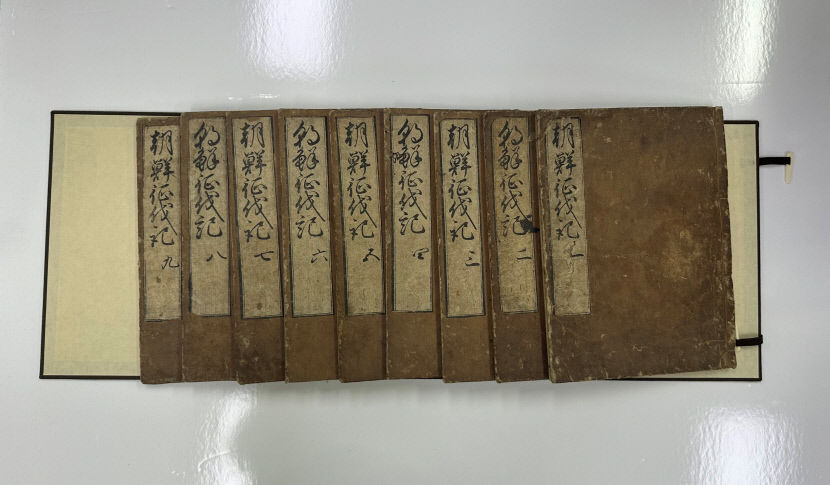 朝鮮征伐記 一
朝鮮征伐記 二
朝鮮征伐記 三
朝鮮征伐記 四
朝鮮征伐記 五
朝鮮征伐記 六
朝鮮征伐記 七
朝鮮征伐記 八
朝鮮征伐記 九